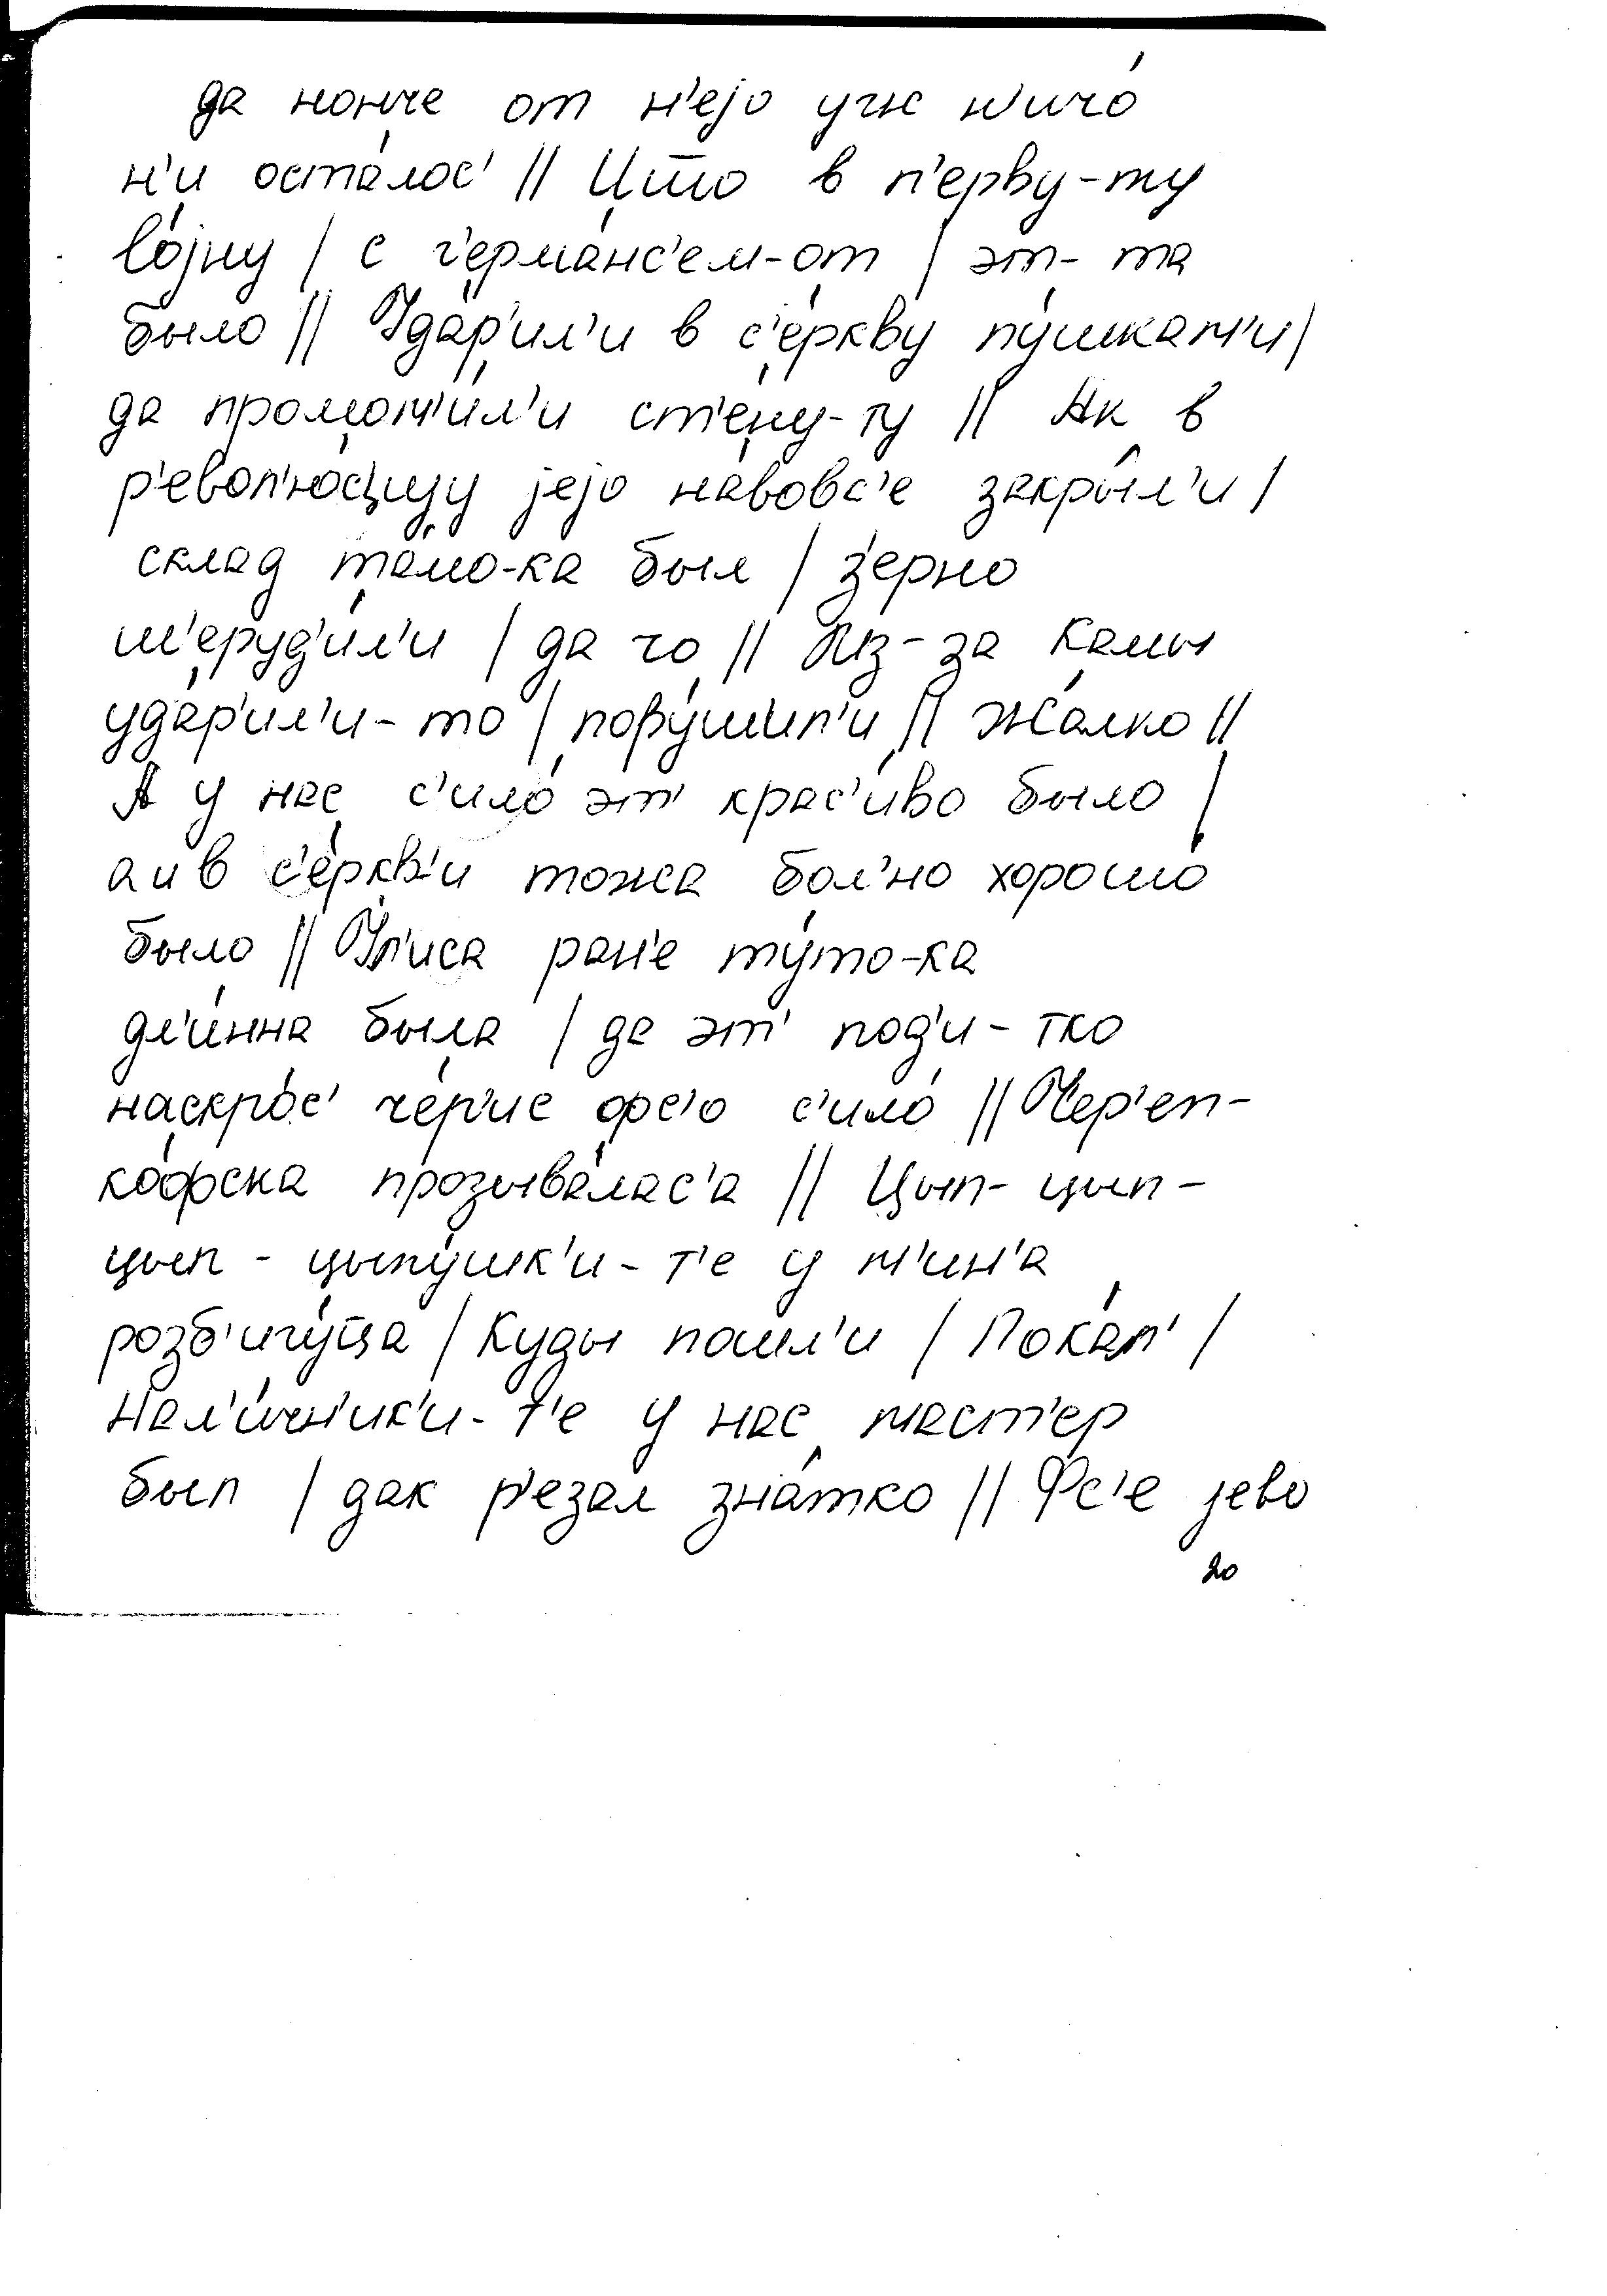 да нонче от н'ејо уж н'ичо́
н'и оста́лос' || Што в п'ерву-ту
во́јну | с г'ерма́нс'ем-от | эт-та
было || Уда́р'ил'и в с'е́ркву пу́шкам'и |
да проломи́л'и ст'е́ну-ту || Ак в
р'евол'ю́цију јејо на́вовс'е закры́л'и |
склад та́мо-ка был | з'ерно
ш'еруди́л'и | да чо || Из-за Камы
уда́р'ил'и-то | пору́шил'и || Жа́лко ||
А у нас с'ило́ эт' крас'и́во было |
а и в с'е́ркв'и тожа бол'но хорошо́
было || Ул'иса ран'е ту́то-ка
дл'и́нна была | да эт' под'и-тко
наскро́с' че́р'ис фс'о с'ило́ || Чер'еп-
ко́фска прозыва́лас'а || Цып-цып-
цып - цыпу́шк'и-т'е у м'ин'а
розб'игу́тца | Куды пошл'и | Пока́л' |
Нал'и́чн'ик'и-т'е у нас маст'ер
был | дак р'езал зна́тко || Фс'е јево
20